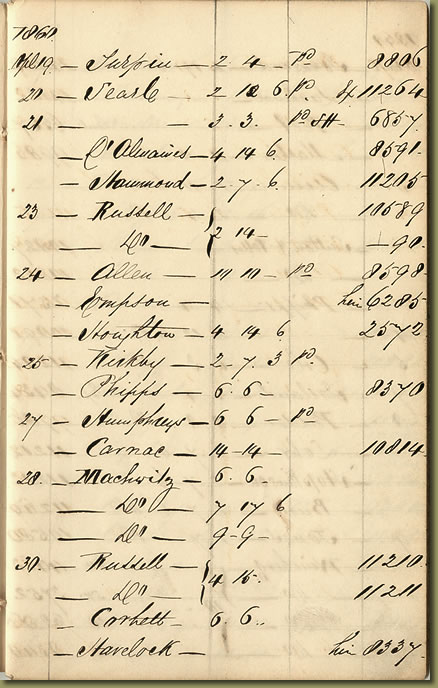 1860.
Apl 19 — Turpin — 2 . 4 — Pd 8806
20 — Searle — 2 12 6. Pd. 11264
21 — — 3 . 3 . Pd SH — 6857.
— D'Almaines — 4 14 6. 8591.
— Hammond — 2 . 7 . 6. 11205
23 — Russell — 10589
— Do — { 2 14 — — 90.
24 — Allen — 11 11 — Pd 8598
— Empson — 6285
— Houghton — 4 14 6. 2572.
25 — Kirkby — 2 . 7 . 3 Pd.
— Phipps — 6 . 6 — 8370
27 — Humphreys — 6 6 — Pd
— Carnac — 14 — 14 — 10814
28. — Machwitz — 6 . 6 .
— Do — 7 17 6
— Do — 9 - 9 —
30. — Russell — 11210.
— Do — { 4 15. 11211
— Corbett — 6 . 6 ..
— Havelock — 8337.